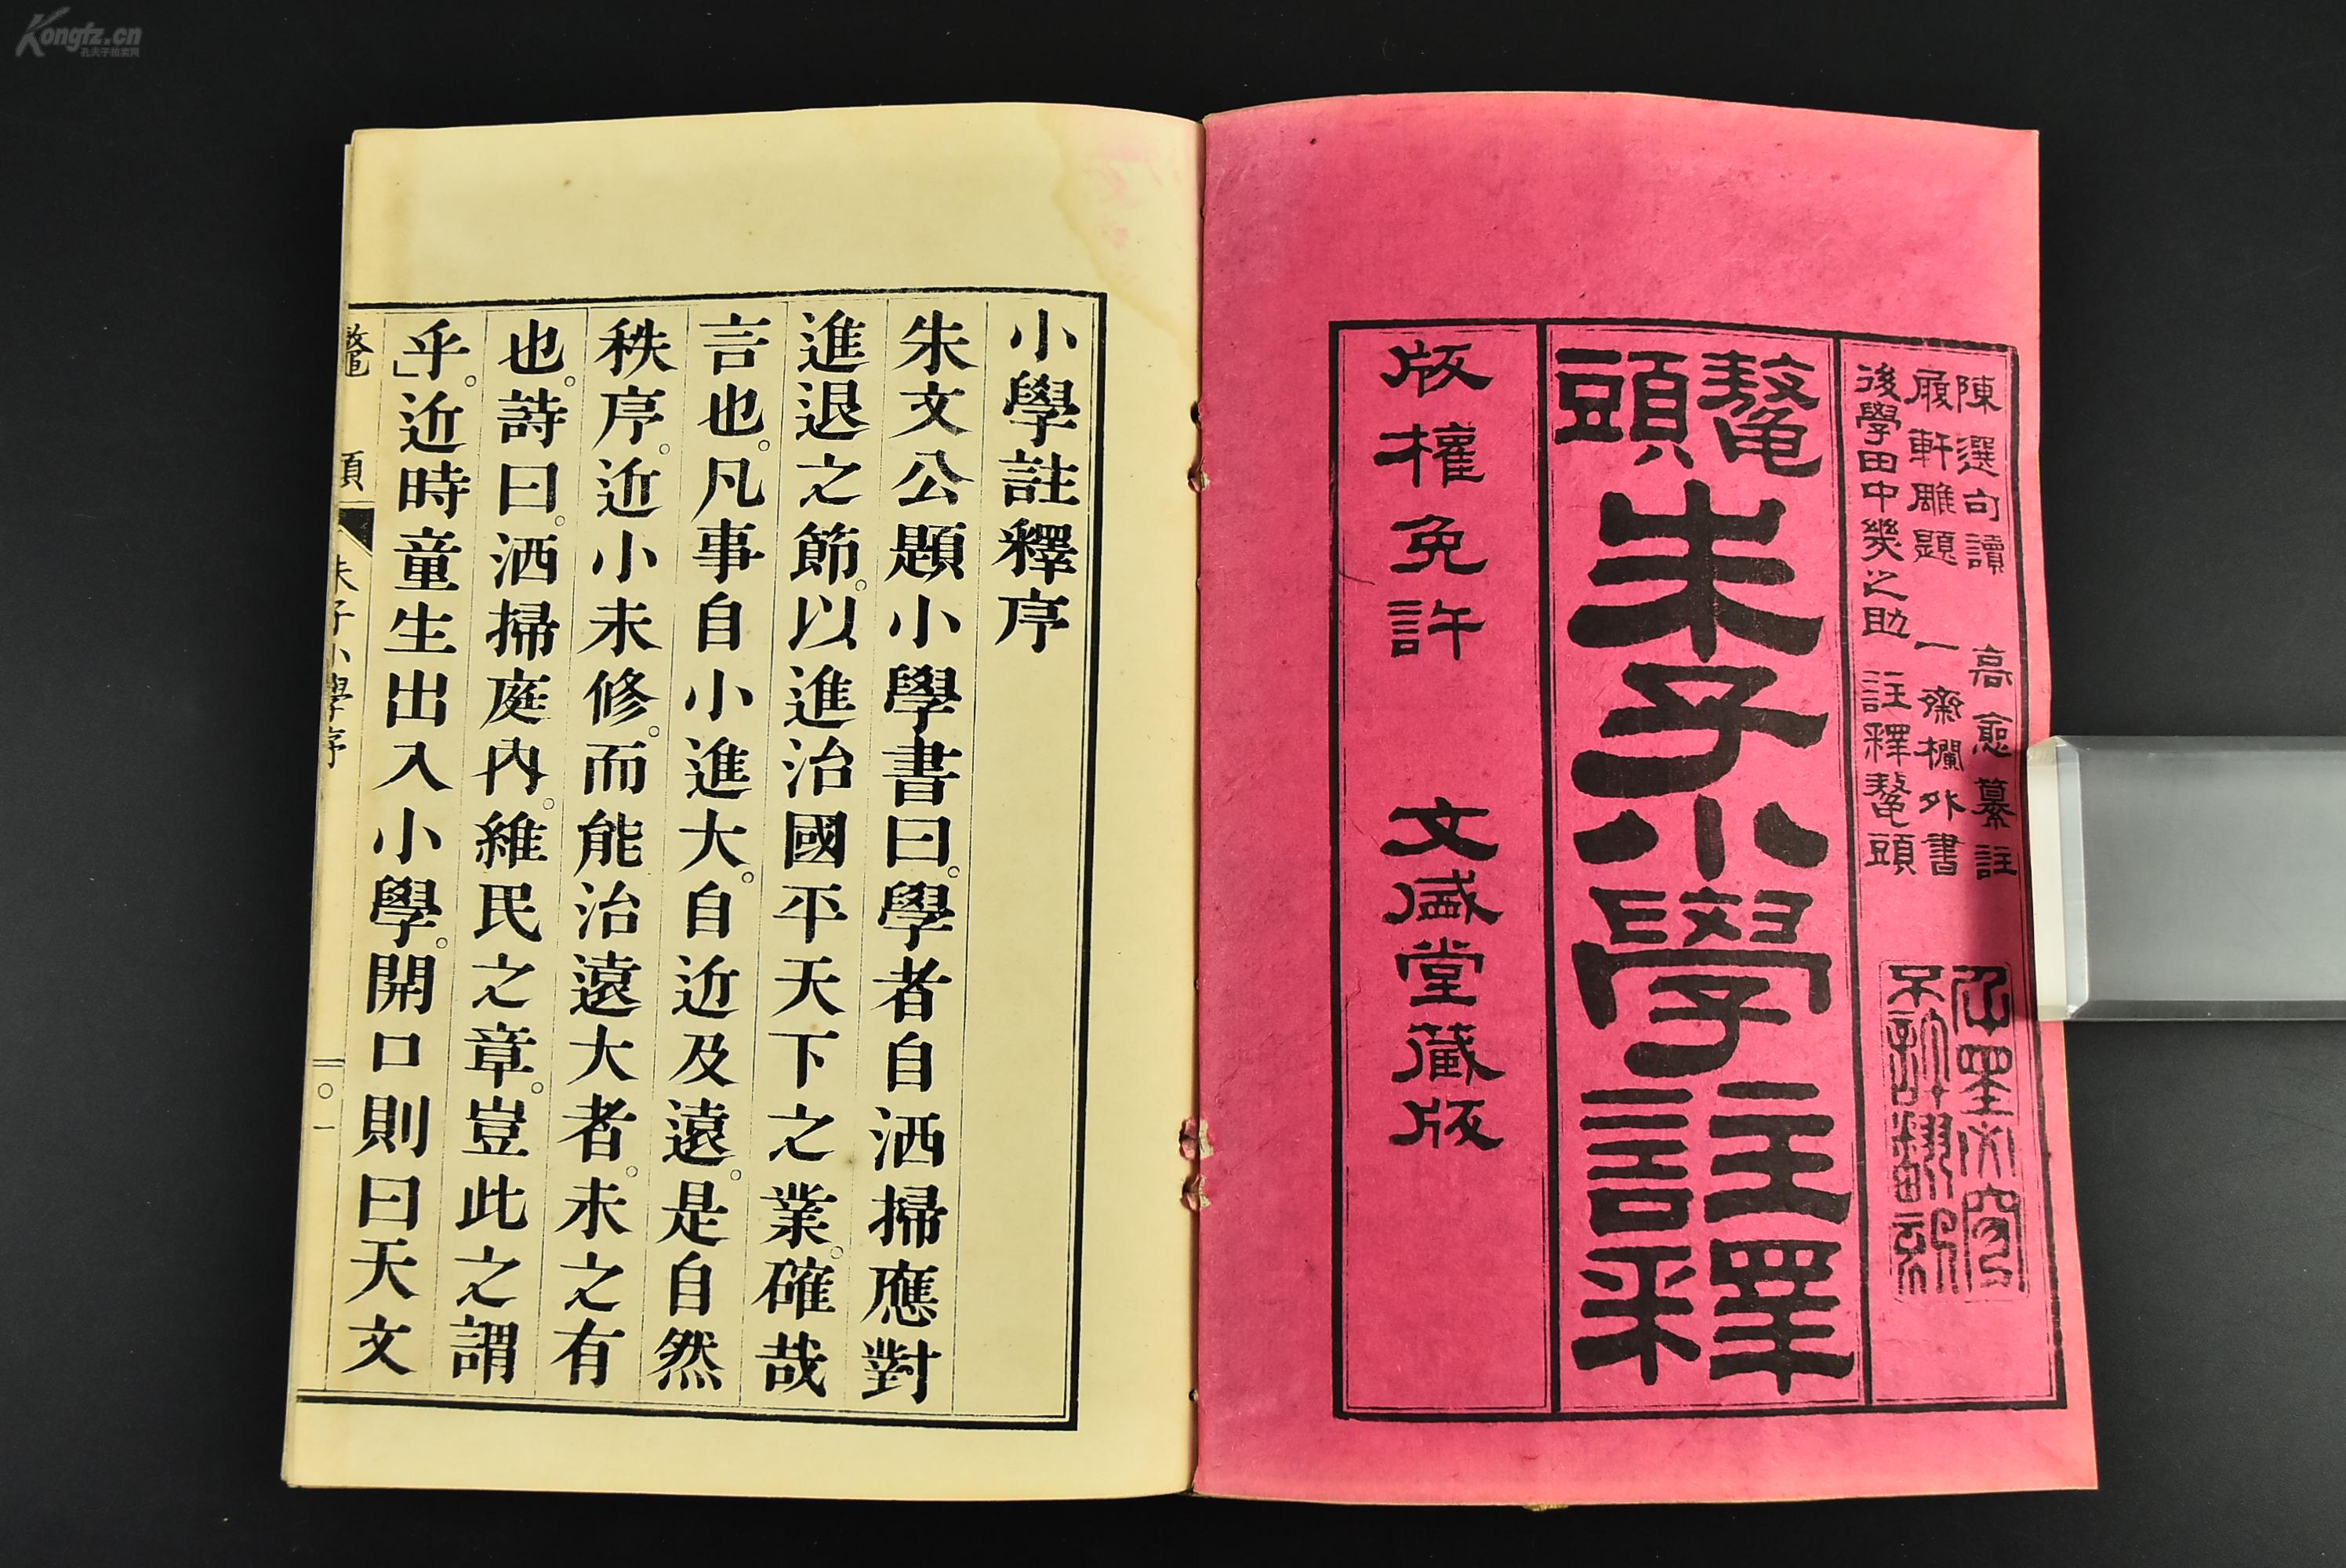 Kongfz.cn
孔夫子拍卖网
陳選句讀 高愈纂註
履軒雕題 一齋欄外書
後學田中幾之助 註釋鼇頭
不許翻刻
鼇頭
朱子小學註釋
版權免許 文盛堂藏版
小學註釋序
朱文公題小學書曰。學者自洒掃應對
進退之節。以進治國平天下之業。確哉
言也。凡事自小進大。自近及遠。是自然
秩序。近小未修。而能治遠大者。未之有
也。詩曰。洒掃庭內。維民之章。豈此之謂
乎。」近時童生出入小學。開口則曰天文
鼇頭 朱子小學序 〇一